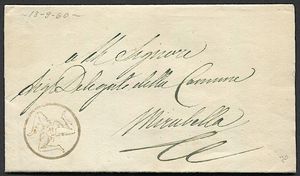 13-9-60
Al Signore
Sig. Delegato della Comune
Mirabella